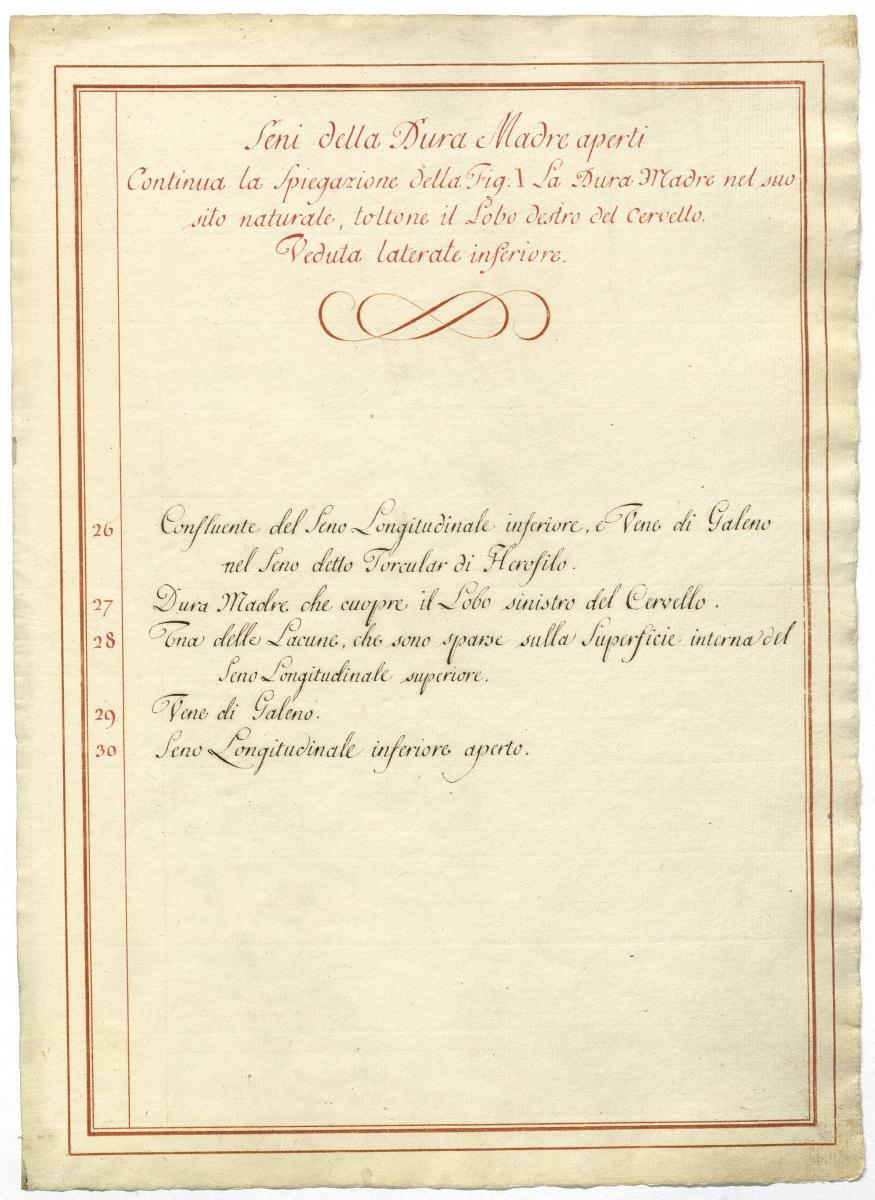 Seni della Dura Madre aperti
Continua la Spiegazione della Fig. I La Dura Madre nel suo
sito naturale, toltone il Lobo destro del Cervello.
Veduta laterale inferiore.
26 Confluente del Seno Longitudinale inferiore, e Vene di Galeno
nel Seno detto Torcular di Herofilo.
27 Dura Madre che cuopre il Lobo sinistro del Cervello.
28 Una delle Lacune, che sono sparse sulla Superficie interna del
Seno Longitudinale superiore.
29 Vene di Galeno.
30 Seno Longitudinale inferiore aperto.